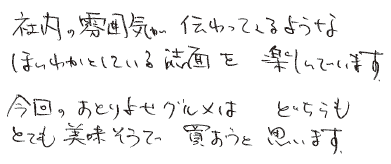 社内の雰囲気が伝わってくるような
ほんわかとしている誌面を楽しんでいます
今回のおとりよせグルメは どちらも
とても美味そうで 買おうと思います。